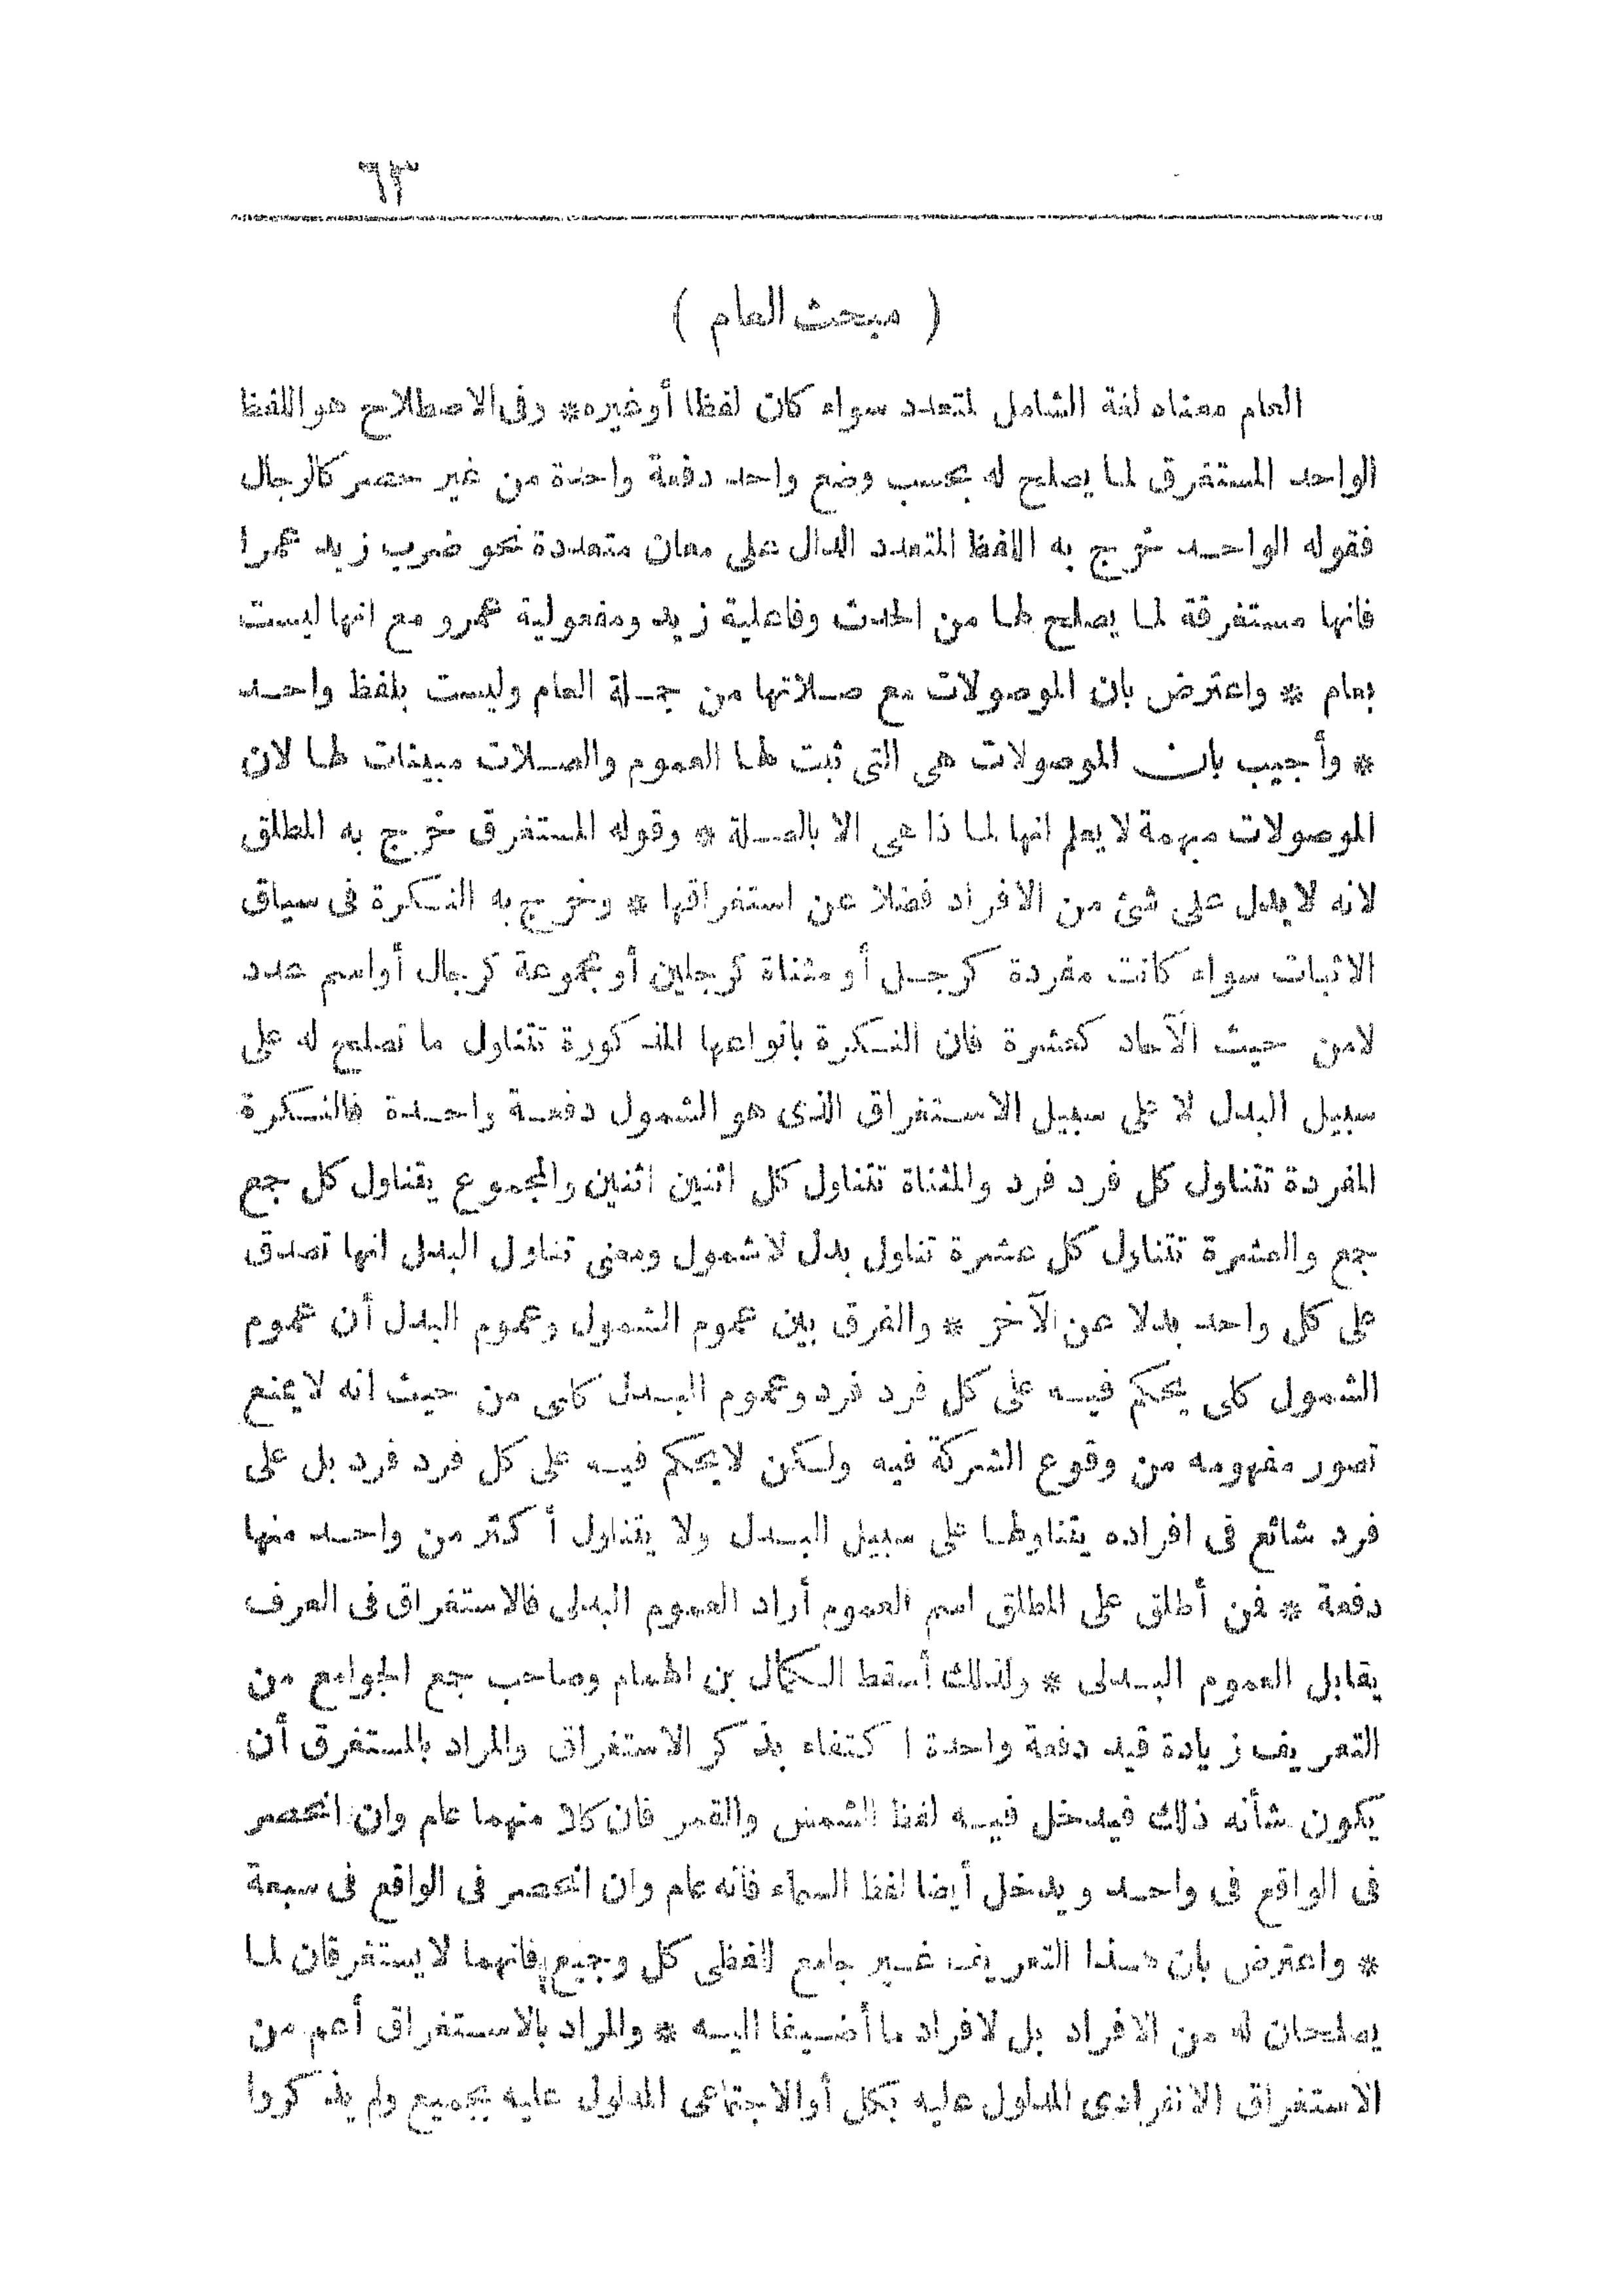 ٦٣
( مبحث العام )
العام معناه لغة الشامل لمتعدد سواء كان لفظا أو غيره * وفى الاصطلاح هو اللفظ
الواحد المستغرق لما يصلح له بحسب وضع واحد دفعة واحدة من غير حصر كالرجال
فقوله الواحد خرج به اللفظ المتعدد الدال على معان متعددة نحو ضرب زيد عمرا
فانها مستغرقة لما يصلح لها من الحدث وفاعلية زيد ومفعولية عمرو مع انها ليست
بعام * واعترض بان الموصولات مع صلاتها من جملة العام وليست بلفظ واحد
* وأجيب بان الموصولات هى التى ثبت لها العموم والصلات مبينات لها لان
الموصولات مبهمة لا يعلم انها لما ذا هى الا بالصلة * وقوله المستغرق خرج به المطلق
لانه لا يدل على شئ من الافراد فضلا عن استغراقها * وخرج به النكرة فى سياق
الاثبات سواء كانت مفردة كرجل أو مثناة كرجلين أو مجموعة كرجال أو اسم عدد
لا من حيث الآحاد كعشرة فان النكرة بانواعها المذكورة تتناول ما تصلح له على
سبيل البدل لا على سبيل الاستغراق الذى هو الشمول دفعة واحدة فالنكرة
المفردة تتناول كل فرد فرد والمثناة تتناول كل اثنين اثنين والمجموع يتناول كل جمع
جمع والعشرة تتناول كل عشرة تناول بدل لا شمول ومعنى تناول البدل انها تصدق
على كل واحد بدلا عن الآخر * والفرق بين عموم الشمول وعموم البدل أن عموم
الشمول كلى يحكم فيه على كل فرد فرد وعموم البدل كلى من حيث انه لا يمنع
تصور مفهومه من وقوع الشركة فيه ولكن لا يحكم فيه على كل فرد فرد بل على
فرد شائع فى افراده يتناولها على سبيل البدل ولا يتناول أكثر من واحد منها
دفعة * فمن أطلق على المطلق اسم العموم أراد العموم البدلى فالاستغراق فى العرف
يقابل العموم البدلى * ولذلك أسقط الكمال بن الهمام وصاحب جمع الجوامع من
التعريف زيادة قيد دفعة واحدة اكتفاء بذكر الاستغراق والمراد بالمستغرق أن
يكون شأنه ذلك فيدخل فيه لفظ الشمس والقمر فان كلا منهما عام وان انحصر
فى الواقع فى واحد ويدخل أيضا لفظ السماء فانه عام وان انحصر فى الواقع فى سبعة
* واعترض بان هذا التعريف غير جامع للفظى كل وجميع فانهما لا يستغرقان لما
يصلحان له من الافراد بل لافراد ما أضيفا اليه * والمراد بالاستغراق أعم من
الاستغراق الانفرادى المدلول عليه بكل أو الاجتماعى المدلول عليه بجميع ولم يذكروا